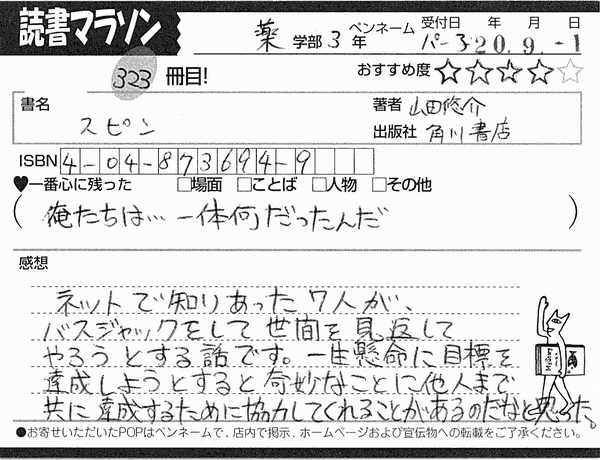 読書マラソン
薬 学部 3 年 ペンネーム パー子 受付日 年 月 日 20.9.-1
323 冊目!
おすすめ度 ★★★★☆
書名 スピン
著者 山田悠介
出版社 角川書店
ISBN 4-04-873694-9
♥一番心に残った □場面 □ことば □人物 □その他
(俺たちは…一体何だったんだ)
感想
ネットで知りあった7人が、
バスジャックをして世間を見返して
やろうとする話です。一生懸命に目標を
達成しようとすると奇妙なことに他人まで
共に達成するために協力してくれることがあるのだなと思った。
●お寄せいただいたPOPはペンネームで、店内で掲示、ホームページおよび宣伝物への転載をご了承ください。